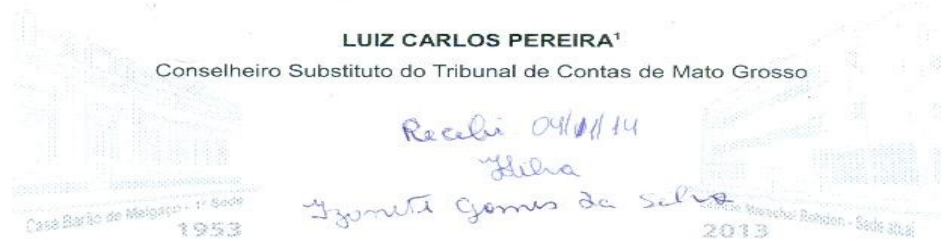 LUIZ CARLOS PEREIRA¹
Conselheiro Substituto do Tribunal de Contas de Mato Grosso
Recebi 04/11/14
Izonete Gomes da Silva
Casa Barão de Melgaço - 1ª Sede
1953
Marechal Rondon - Sede atual
2013